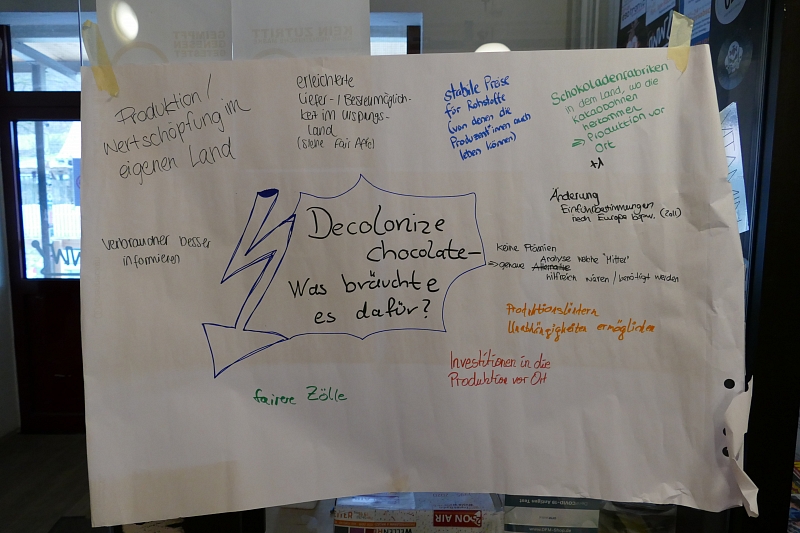 KEIN ZUTRITT
Produktion /
Wertschöpfung im
eigenen Land
erleichterte
Liefer-/Bestellmöglich-
keit im Urspungs-
land
(siehe Fair Afric)
stabile Preise
für Rohstoffe
(von denen die
Produzent*innen auch
leben können)
Schokoladenfabriken
in dem Land, wo die
Kakaobohnen
herkommen
⇒ Produktion vor
Ort
+1
Änderung
Einfuhrbestimmungen
nach Europa bspw. (Zoll)
Verbraucher besser
informieren
Decolonize
chocolate-
Was bräuchte
es dafür?
keine Prämien
⇒ genaue Analyse welche "Mittel"
hilfreich wären / benötigt werden
Produktionsländern
Unabhängigkeiten ermöglichen
Investitionen in die
Produktion vor Ort
fairere Zölle
ON AIR